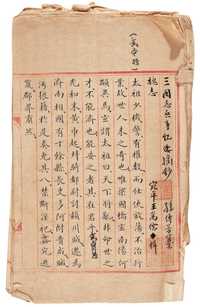 三國志兵事紀要摘鈔
魏志
太祖少機警有權數而任俠放蕩不治行
業故世人未之奇也唯梁國橋玄南陽何
顒異焉玄謂太祖曰天下將亂非命世之
才不能濟也能安之者其在君乎武帝紀
光和末黃巾起拜騎都尉討潁川賊遷為
濟南相國有十餘縣長吏多阿附貴戚贓
污狼藉於是奏免其八禁斷淫祀姦宄逃
竄郡界肅然